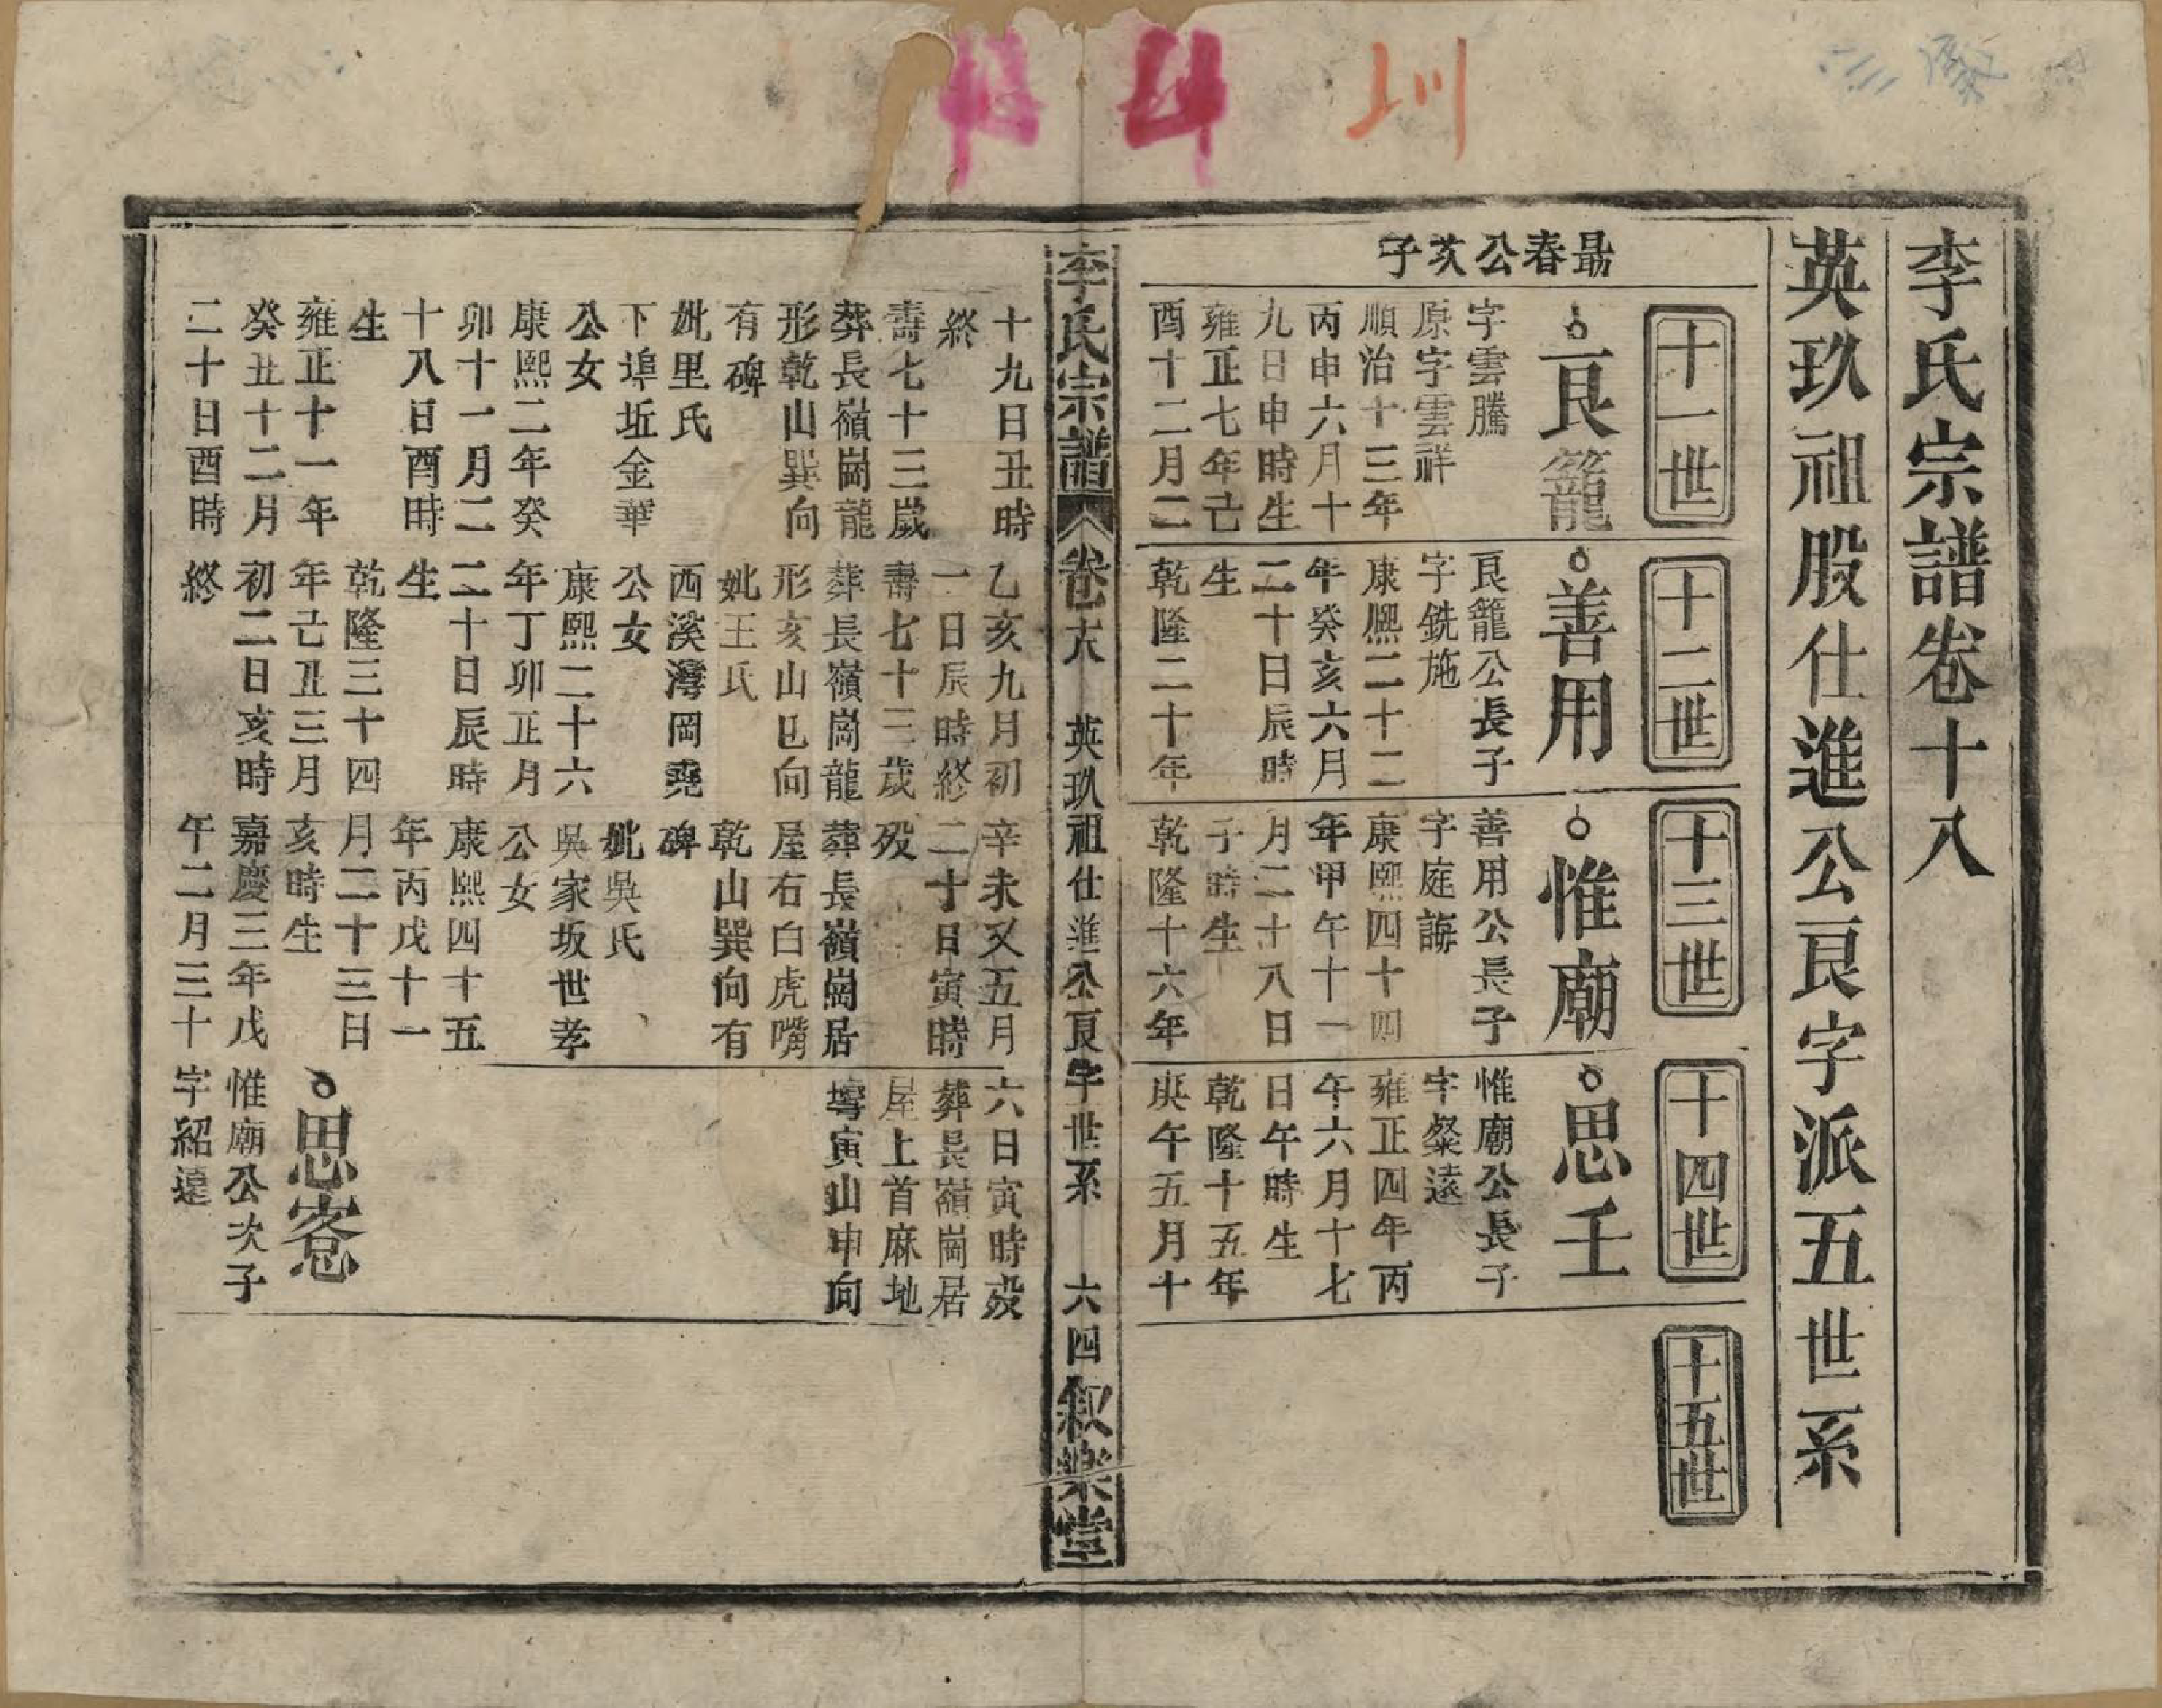 李氏宗譜卷十八
英玖祖股仕進公艮字派五世系
十一世
十二世
十三世
十四世
十五世
勗春公次子
艮籠
字雲騰
原字雲祥
順治十三年
丙申六月十
九日申時生
雍正七年己
酉十二月二
善用
艮籠公長子
字銑施
康熙二十二
年癸亥六月
二十日辰時
生
乾隆二十年
惟廟
善用公長子
字庭誨
康熙四十四
年甲午十一
月二十八日
子時生
乾隆十六年
思壬
惟廟公長子
字粲遠
雍正四年丙
午六月十七
日午時生
乾隆十五年
庚午五月十
李氏宗譜 卷十八 英玖祖仕進公艮字世系 六四 叙樂堂
十九日丑時
終
壽七十三歲
葬長嶺崗龍
形乾山巽向
有碑
妣里氏
下埠坵金華
公女
康熙二年癸
卯十一月二
十八日酉時
生
雍正十一年
癸丑十二月
二十日酉時
乙亥九月初
一日辰時終
壽七十三歲
葬長嶺崗龍
形亥山巳向
妣王氏
西溪灣岡堯
公女
康熙二十六
年丁卯正月
二十日辰時
生
乾隆三十四
年己丑三月
初二日亥時
終
辛未又五月
二十日寅時
歿
葬長嶺崗居
屋右白虎嘴
乾山巽向有
碑
妣吳氏
吳家坂世孝
公女
康熙四十五
年丙戌十一
月二十三日
亥時生
嘉慶三年戊
午二月三十
六日寅時歿
葬長嶺崗居
屋上首麻地
塆寅山申向
思窓
惟廟公次子
字紹遠